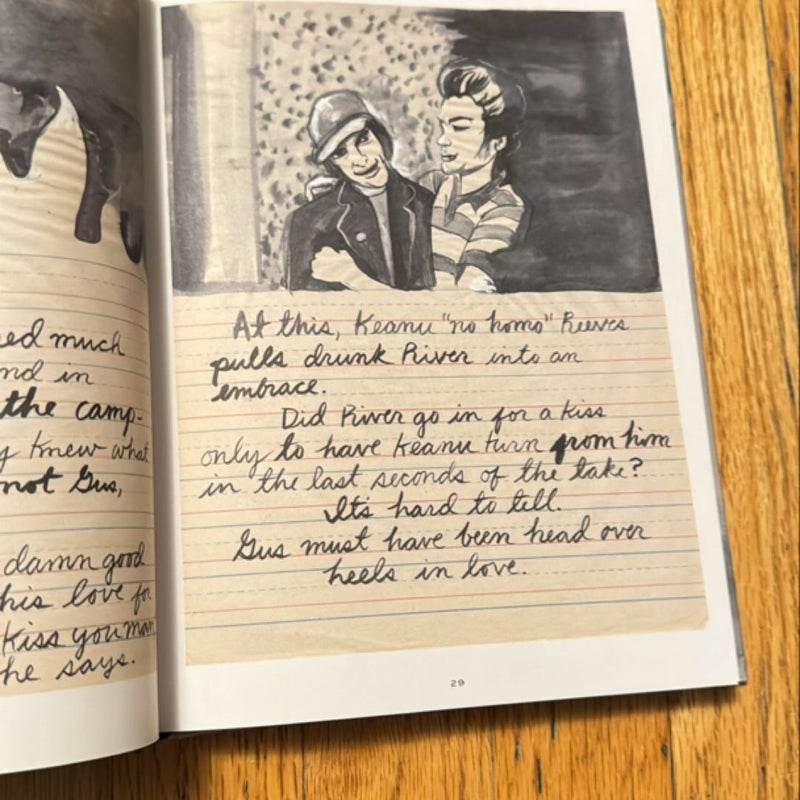 ed much
nd in
the camp-
y knew what
not Gus,
damn good
his love for
Kiss you man,
he says.
At this, Keanu "no homo" Reeves
pulls drunk River into an
embrace.
Did River go in for a kiss
only to have Keanu turn from him
in the last seconds of the take?
It's hard to tell.
Gus must have been head over
heels in love.
29